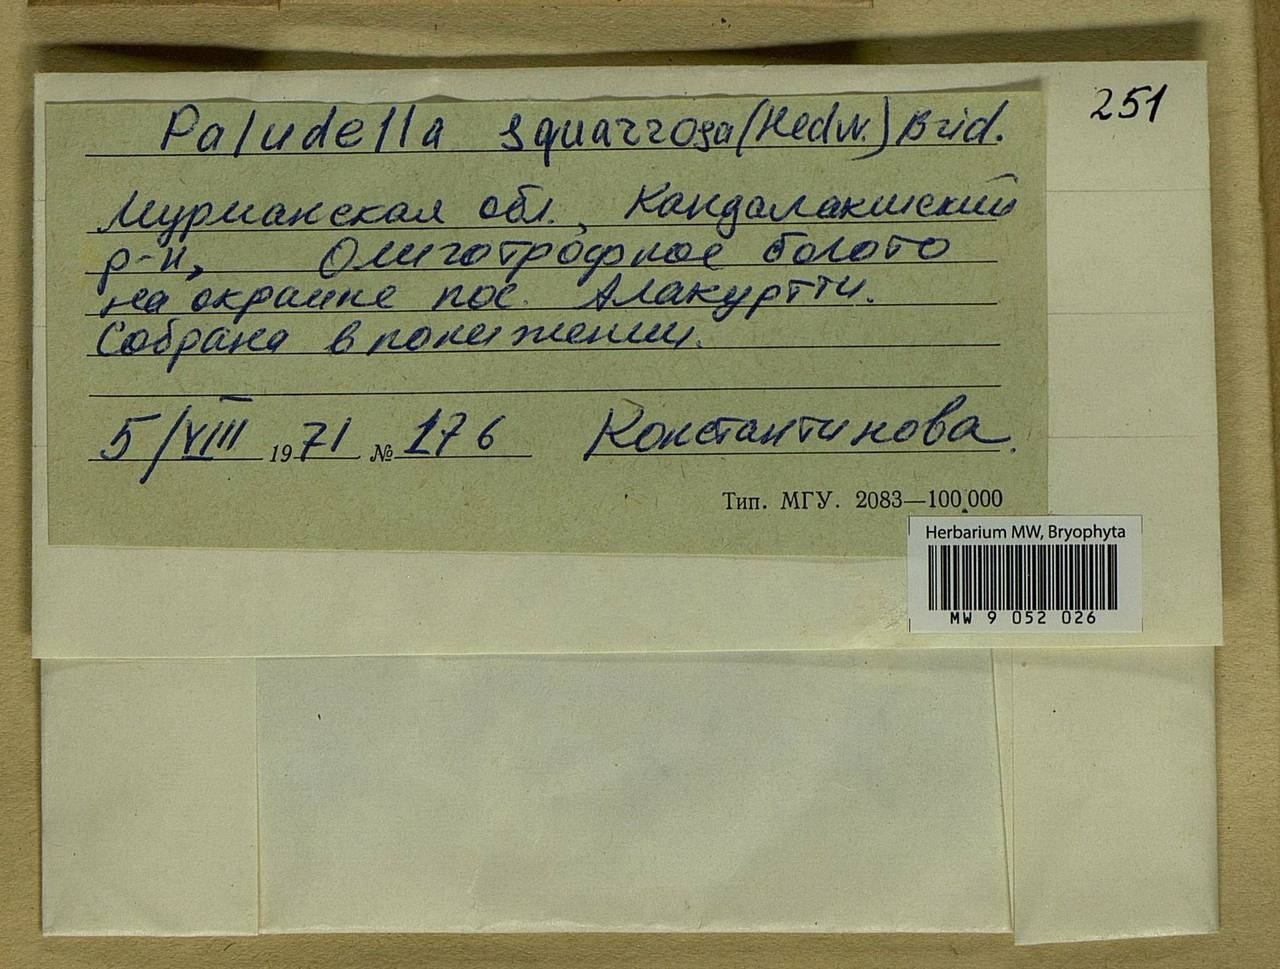 251
Paludella squarrosa (Hedw.) Brid.
Мурманская обл., Кандалакшский
р-н, Олиготрофное болото
на окраине пос. Алакуртти.
Собрана в понижении.
5/VIII 1971 № 176 Константинова.
Тип. МГУ. 2083—100.000
Herbarium MW, Bryophyta
MW 9 052 026